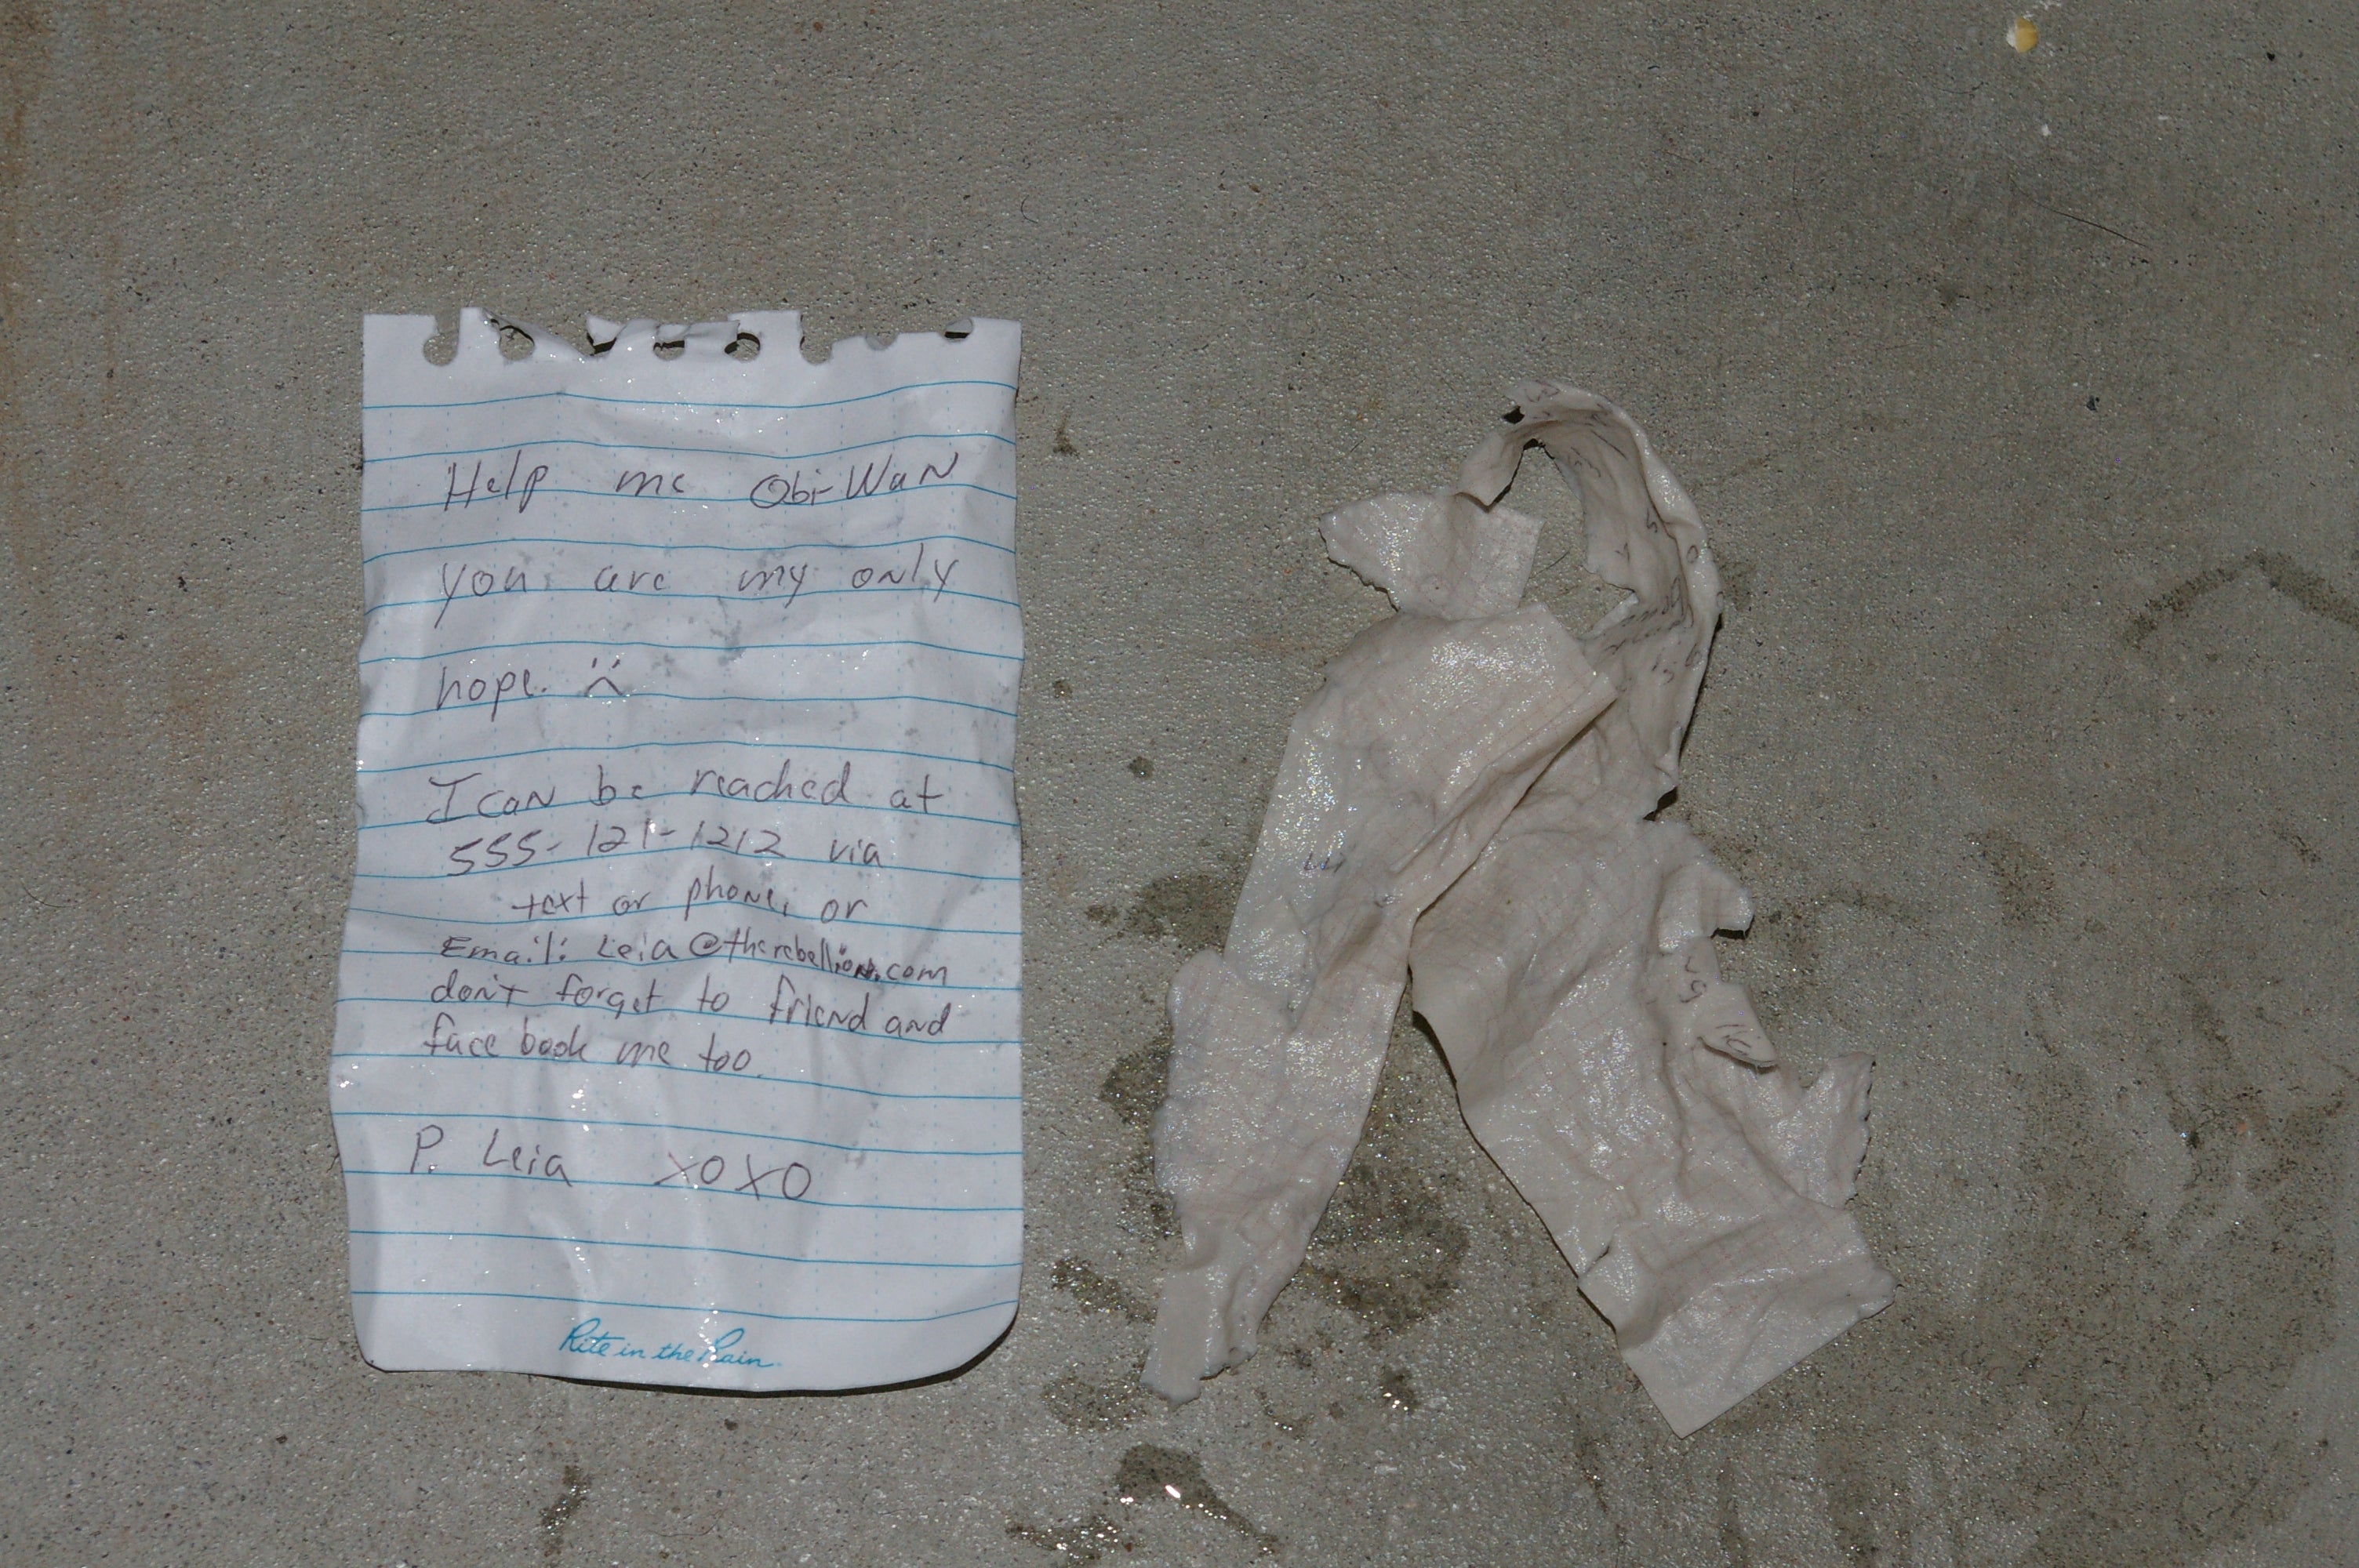 Help me Obi-Wan
you are my only
hope. :(
I can be reached at
555-121-1212 via
text or phone, or
Email: Leia@therebellion.com
don't forget to friend and
face book me too.
P. Leia XOXO
Rite in the Rain